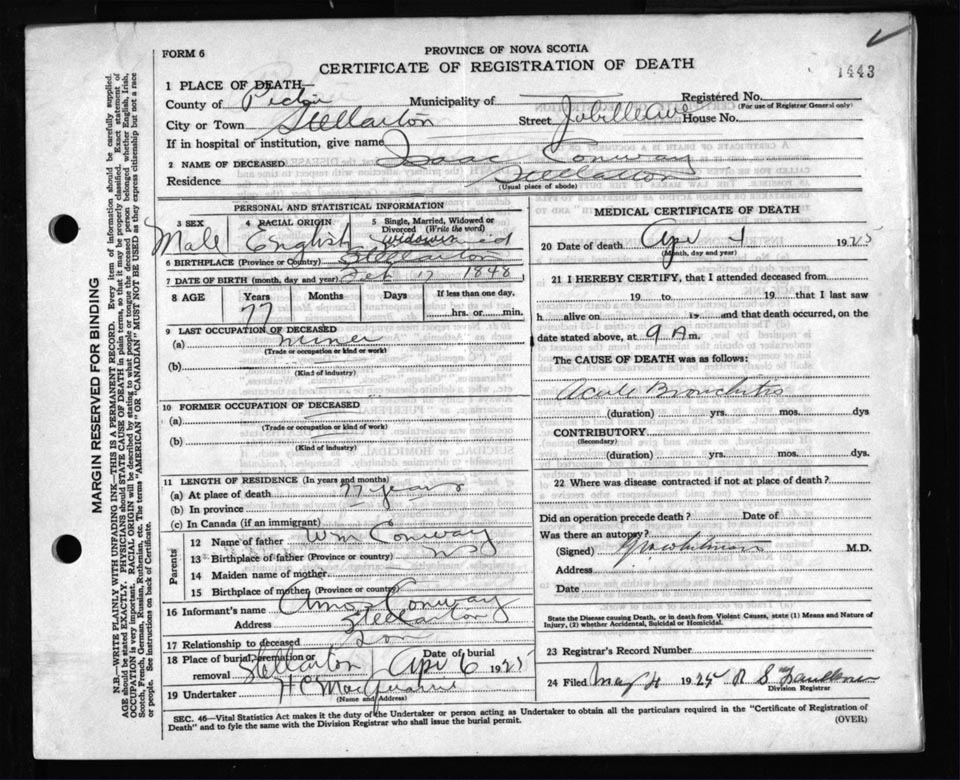 FORM 6
PROVINCE OF NOVA SCOTIA
CERTIFICATE OF REGISTRATION OF DEATH
1443
1 PLACE OF DEATH—
Registered No.
(For use of Registrar General only)
County of Pictou Municipality of
City or Town Stellarton Street Jubilee Ave House No.
If in hospital or institution, give name
2 NAME OF DECEASED Isaac Conway
Residence Stellarton
(Usual place of abode)
PERSONAL AND STATISTICAL INFORMATION
3 SEX 4 RACIAL ORIGIN 5 Single, Married, Widowed or Divorced (Write the word)
Male English
6 BIRTHPLACE (Province or Country) Stellarton
7 DATE OF BIRTH (month, day and year) Feb 17 1848
8 AGE Years Months Days If less than one day,
77 hrs. or min.
9 LAST OCCUPATION OF DECEASED
(a) miner
(Trade or occupation or kind or work)
(b)
(Kind of industry)
10 FORMER OCCUPATION OF DECEASED
(a)
(Trade or occupation or kind of work)
(b)
(Kind of industry)
11 LENGTH OF RESIDENCE (In years and months)
(a) At place of death 77 years
(b) In province
(c) In Canada (if an immigrant)
Parents
12 Name of father Wm Conway
13 Birthplace of father (Province or country) NS
14 Maiden name of mother
15 Birthplace of mother (Province or country)
16 Informant's name Amos Conway
Address Stellarton
17 Relationship to deceased Son
18 Place of burial, cremation or removal Stellarton Date of burial Apr 6 1925
19 Undertaker H C
(Name and Address)
MEDICAL CERTIFICATE OF DEATH
20 Date of death Apr 1925
(Month, day and year)
21 I HEREBY CERTIFY, that I attended deceased from
19 to 19 that I last saw
h alive on 19 and that death occurred, on
date stated above, at 9 A m.
The CAUSE OF DEATH was as follows:
Acute Bronchitis
(duration) yrs. mos. dys
CONTRIBUTORY
(Secondary)
(duration) yrs. mos. dys.
22 Where was disease contracted if not at place of death?
Did an operation precede death? Date of
Was there an autopsy?
(Signed) M.D.
Address
Date
State the Disease causing Death, or in death from Violent Causes, state (1) Means and Nature of
Injury, (2) whether Accidental, Suicidal or Homicidal.
23 Registrar's Record Number
24 Filed May 4 1925 R S
Division Registrar
SEC. 46—Vital Statistics Act makes it the duty of the Undertaker or person acting as Undertaker to obtain all the particulars required in the "Certificate of Registration of
Death" and to fyle the same with the Division Registrar who shall issue the burial permit.
(OVER)
MARGIN RESERVED FOR BINDING
N.B.—WRITE PLAINLY WITH UNFADING INK—THIS IS A PERMANENT RECORD. Every item of information should be carefully supplied.
AGE should be stated EXACTLY. PHYSICIANS should STATE CAUSE OF DEATH in plain terms, so that it may be properly classified. Exact statement of
OCCUPATION is very important. RACIAL ORIGIN will be described by stating to what people or tongue the deceased person belonged whether English, Irish,
Scotch, French, German, Russian, Ruthenian, etc. The terms "AMERICAN" OR "CANADIAN" MUST NOT BE USED as they express citizenship but not a race
or people. See instructions on back of Certificate.